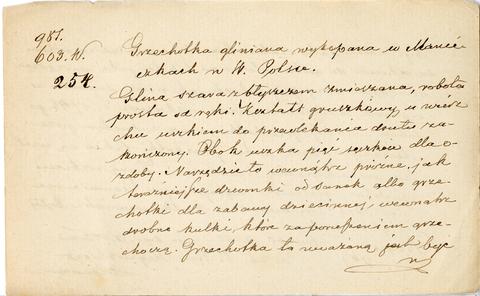 981.
603.W.
254.
Grzechotka gliniana wykopana w Manie
czkach w W. Polsce.
Glina szara z błyszczem zmieszana, robota
prosta od ręki. Kształt gruszkowy, u wierz
chu uszkiem do przewlekania drutu za
kończony. Obok uszka pięć sęczków dla o-
zdoby. Narzędzie to wewnątrz próżne, jak
teraźniejsze dzwonki od sanek albo grze
chotki dla zabawy dziecinnej, wewnątrz
drobne kulki, które za poruszeniem grze-
choczą. Grzechotka ta uważaną jest być